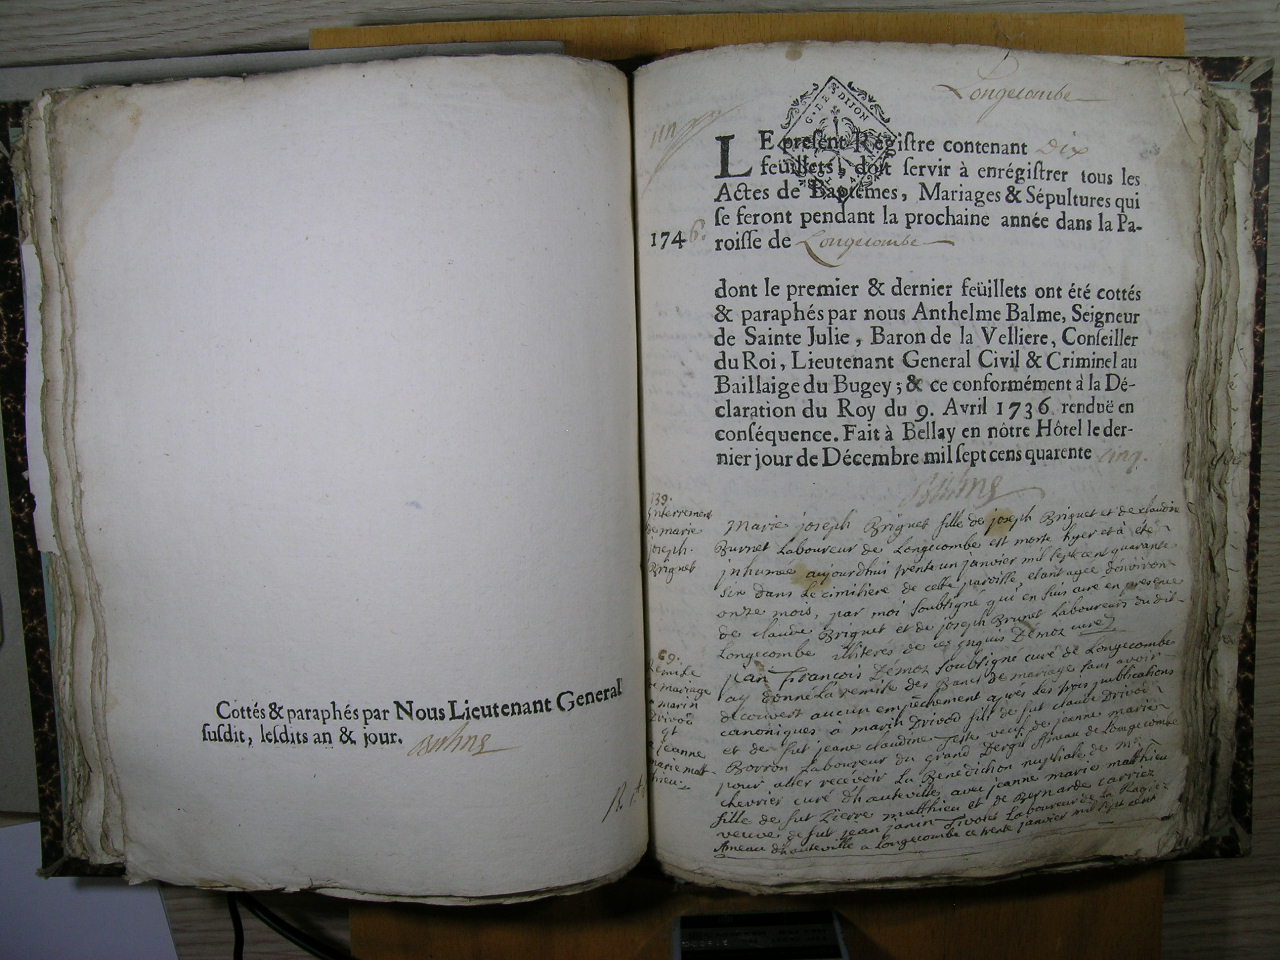 Cottés & paraphés par Nous Lieutenant General
susdit, lesdits an & jour.
Longecombe
G. DE DIJON
LE present Registre contenant Dix
feüillets, doit servir à enrégistrer tous les
Actes de Baptêmes, Mariages & Sépultures qui
se feront pendant la prochaine année dans la Pa-
1746. roisse de Longecombe
dont le premier & dernier feüillets ont été cottés
& paraphés par nous Anthelme Balme, Seigneur
de Sainte Julie, Baron de la Velliere, Conseiller
du Roi, Lieutenant General Civil & Criminel au
Baillaige du Bugey; & ce conformément à la Dé-
claration du Roy du 9. Avril 1736 renduë en
conséquence. Fait à Bellay en nôtre Hôtel le der-
nier jour de Décembre mil sept cens quarente cinq.
139.
Enterrement
de marie
joseph
Briguet
Marie joseph Briguet fille de joseph Briguet et de claudine
Burnet Laboureur de Longecombe est morte hyer et à été
inhumée aujourdhui trente un janvier mil sept cent quarante
six dans le cimitiere de cette paroisse, etant agée denviron
onze mois, par moi soubsigné qui en suis curé en presence
de claude Briguet et de joseph Brunet Laboureurs du dit
Longecombe illiterés de ce enquis Démoz curé
69.
Remise
de mariage
marin
Drivod
et
jeanne
marie mat
thieu
jean François Démoz soubsigné curé de Longecombe
ay donné La remise des Bancs de mariage sans avoir
découvert aucun empêchement après les trois publications
canoniques à marin Drivod fils de fut claude Drivod
et de fut jeanne claudine veuf de jeanne marie
Borron Laboureur du grand Dergit Ameau de Longecombe
pour aller recevoir La Benediction nuptiale de mr
chevrier curé d'hauteville avec jeanne marie matthieu
fille de fut Pierre matthieu et de Bernarde carrier
veuve de fut jean janin Laboureur de La
Ameau d'hauteville a Longecombe ce trente janvier mil sept cent